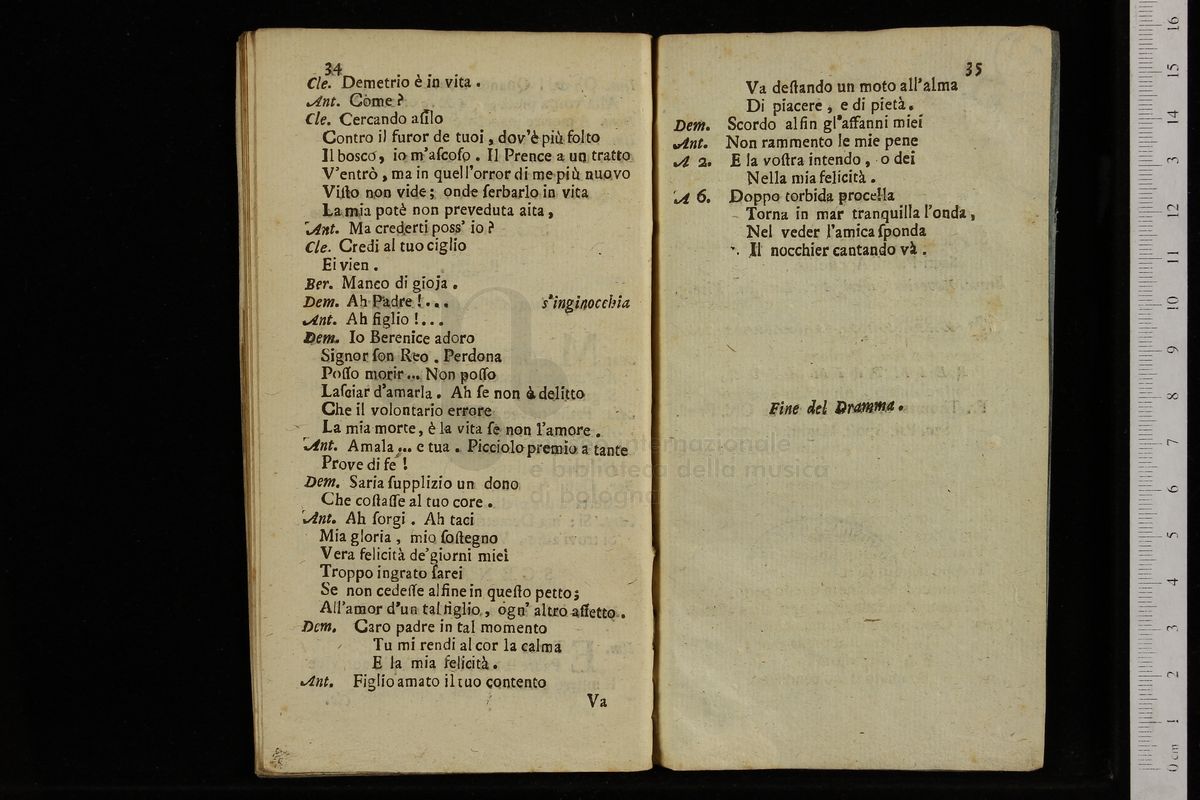 34
Cle. Demetrio è in vita .
Ant. Come ?
Cle. Cercando aſilo
Contro il furor de tuoi , dov'è più folto
Il bosco , io m'aſcoſo . Il Prence a un tratto
V'entrò , ma in quell'orror di me più nuovo
Viſto non vide ; onde ſerbarlo in vita
La mia potè non preveduta aita ,
Ant. Ma crederti poss' io ?
Cle. Credi al tuo ciglio
Ei vien .
Ber. Manco di gioja .
Dem. Ah Padre ! . . . s'inginocchia
Ant. Ah figlio ! . . .
Dem. Io Berenice adoro
Signor ſon Reo . Perdona
Poſſo morir ... Non poſſo
Laſciar d'amarla . Ah ſe non à delitto
Che il volontario errore
La mia morte , è la vita ſe non l'amore .
Ant. Amala ... e tua . Picciolo premio a tante
Prove di fe !
Dem. Saria ſupplizio un dono
Che coſtaſſe al tuo core .
Ant. Ah ſorgi . Ah taci
Mia gloria , mio ſoſtegno
Vera felicità de'giorni miei
Troppo ingrato ſarei
Se non cedeſſe alfine in queſto petto ;
All'amor d'un tal figlio , ogn' altro affetto .
Dem. Caro padre in tal momento
Tu mi rendi al cor la calma
E la mia felicità .
Ant. Figlio amato il tuo contento
Va
35
Va deſtando un moto all'alma
Di piacere , e di pietà .
Dem. Scordo alfin gl'affanni miei
Ant. Non rammento le mie pene
A 2. E la voſtra intendo , o dei
Nella mia felicità .
A 6. Doppo torbida procella
Torna in mar tranquilla l'onda ,
Nel veder l'amica ſponda
Il nocchier cantando và .
Fine del Dramma .
internazionale
e biblioteca della musica
di bologna
0 cm 1 2 3 4 5 6 7 8 9 10 11 12 3 14 15 16